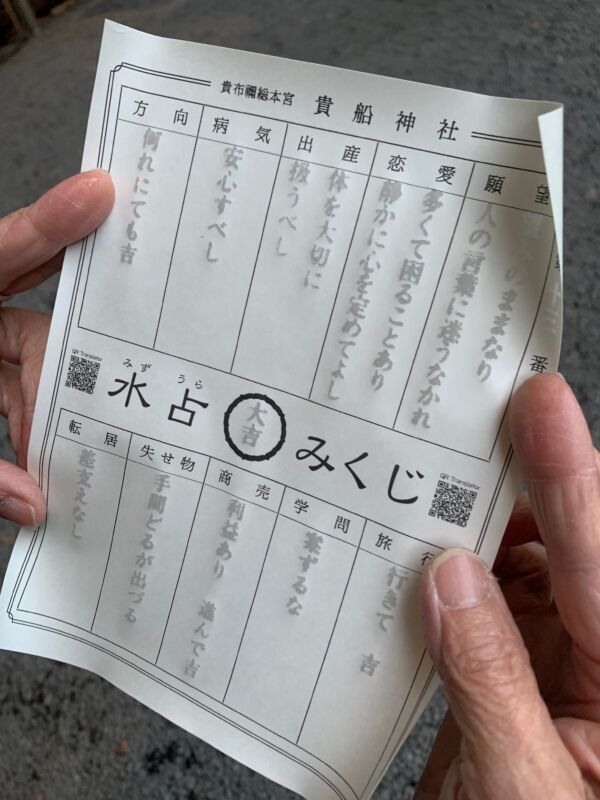 貴布禰総本宮 貴船神社
第十三番
願望
のままなり
人の言葉に迷うなかれ
恋愛
多くて困ることあり
静かに心を定めてよし
出産
体を大切に
扱うべし
病気
安心すべし
方向
何れにても吉
QR Translator
みず うら
水占みくじ
大吉
QR Translator
旅行
行きて 吉
学問
案ずるな
商売
利益あり 進んで吉
失せ物
手間どるが出づる
転居
差支えなし